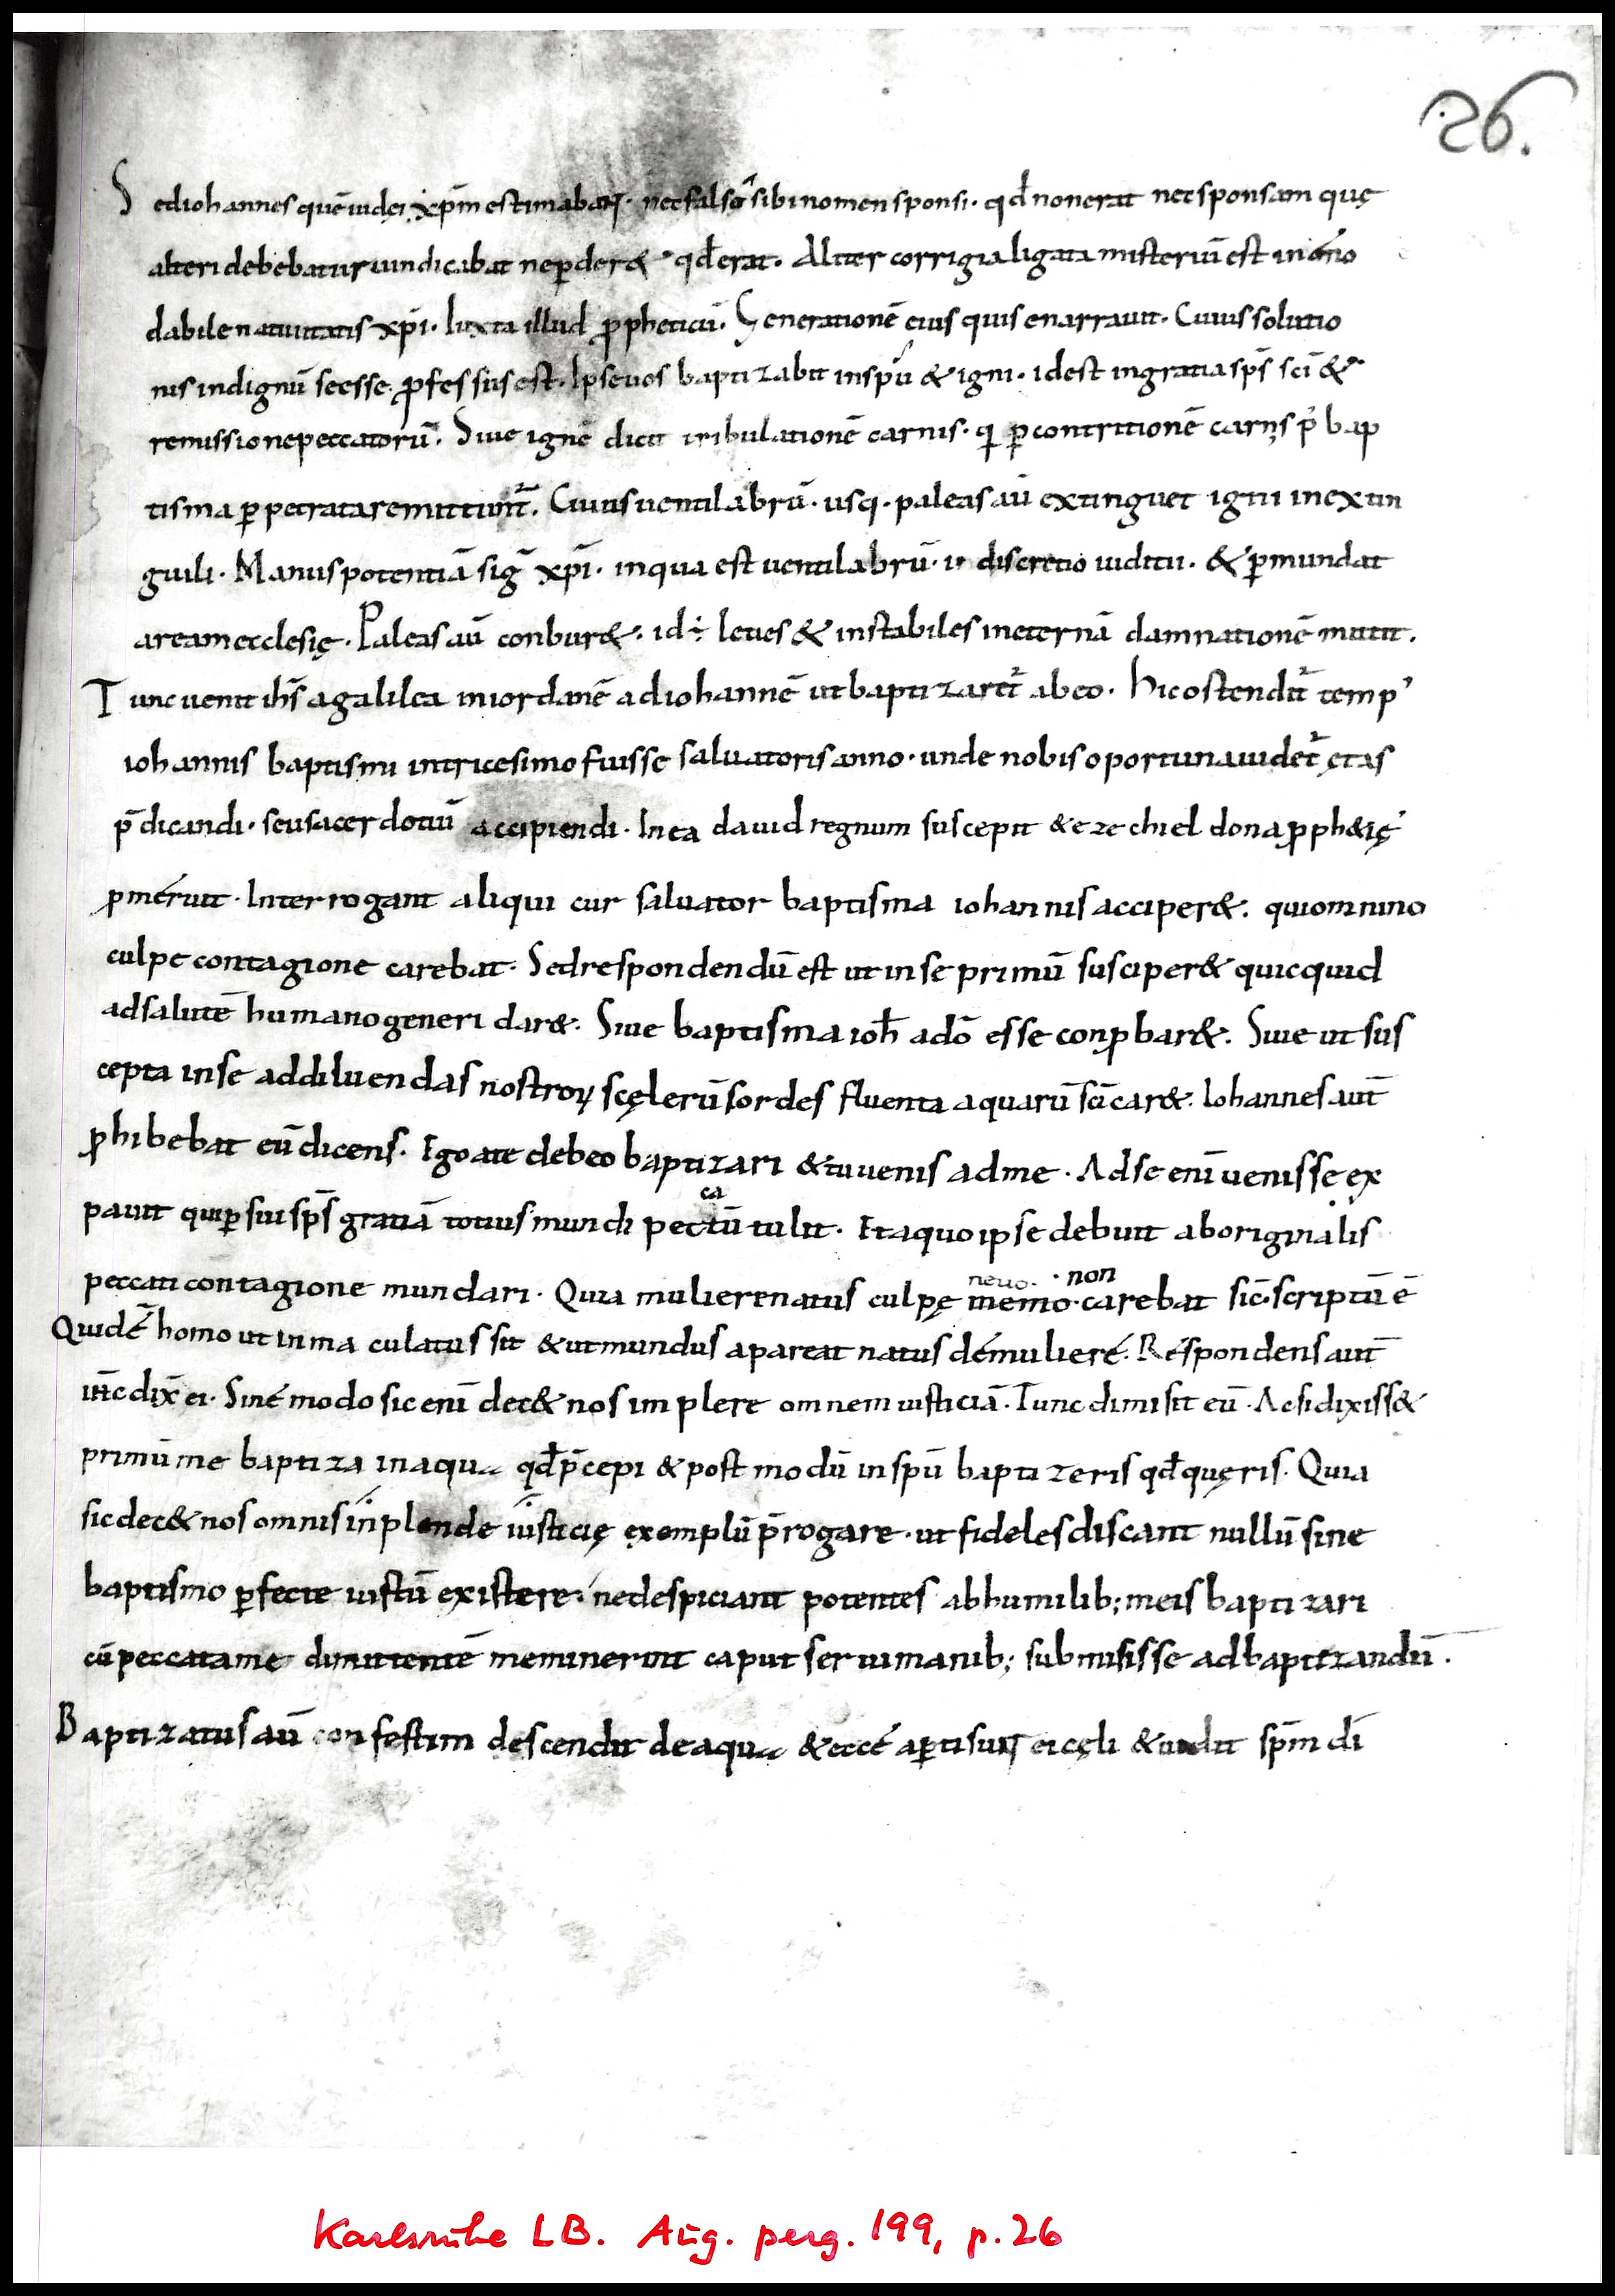 26.
Sed iohannes quē iudęi xp̄m estimabant. nec falso sibi nomen sponsi. qđ non erat nec sponsam quę
alteri debebatur uindicabat ne p̲der& qđ erat. Aliter corrigia ligata misteriū est in
dabile natiuitatis xp̄i. Iuxta illud p̱pheticū. Generationē eius quis enarrauit. Cuius solutio
nis indignū se esse p̱fessus est. Ipse uos baptizabit in spū & igni. id est in gratia sp̄s sc̄i &
remissione peccatorū. Siue ignē dicit tribulationē carnis. q p̲ contritionē carnis p' bap
tisma p̲petrata remittunt̄. Cuius uentilabrū. usq. paleas aū extinguet igni inextin
guili. Manus potentiā siḡ xp̄i. in qua est uentilabrū. discretio iuditii. & p̲mundat
aream ecclesię. Paleas aū conbur&. id ÷ leues & instabiles in eternā damnationē mittit.
Tunc uenit ih̄s a galilea in iordanē ad iohannē ut baptizaret̄ ab eo. Hic ostendit̄ temp'
iohannis baptismi in tricesimo fuisse saluatoris anno. unde nobis oportuna uidet̄ ętas
p̄dicandi. seu sacerdotiū accipiendi. In ea dauid regnum suscepit & ezechiel dona p̱ph&ię
p̱meruit. Interrogant aliqui cur saluator baptisma iohannis acciper&. qui omnino
culpe contagione carebat. Sed respondendū est ut in se primū susciper& quicquid
ad salutē humano generi dar&. Siue baptisma ioh̄ a dō esse conp̱bar&. Siue ut sus
cepta in se ad diluendas nostroꝝ scęlerū sordes fluenta aquarū sc̄ificar&. Iohannes aut̄
p̱hibebat eū dicens. Ego a te debeo baptizari & tu uenis ad me. Ad se enī uenisse ex
pauit qui p̲ sui sp̄s gratiā totius mundi pec
ca
tū tulit. Et a quo ipse debuit ab originalis
peccati contagione mundari. Quia muliere natus culpę nemo. carebat sic̄. scriptū ē
. non
Quid ē homo ut inmaculatus sit & ut mundus apareat natus de muliere. Respondens aut̄
ih̄c dix̄ ei. Sine modo sic enī dec& nos implere omnem iusticiā. Tunc dimisit eū. Ac si dixiss&
primū me baptiza in aqua qđ p̄cepi & postmodū in spū baptizeris qđ quęris. Quia
sic dec& nos omnis inplende iusticię exemplū p̄rogare. ut fideles discant nullū sine
baptismo p̲fecte iustū existere. ne despiciant potentes ab humilib; meis baptizari
cū peccata me dimittentē meminerint caput serui manib; submisisse ad baptizandū.
Baptizatus aū confestim descendit de aqua & ecce ap̲ti sunt ei cęli & uidit sp̄m dī
Karlsruhe LB. Aug. perg. 199, p. 26